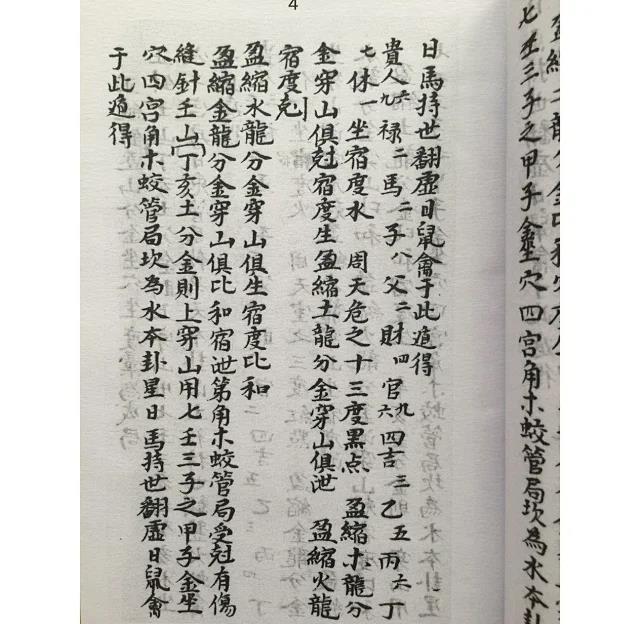 4
盈縮二龍分金
七壬三子之甲子金坐穴四宫角木蛟管局坎為水本卦
日馬持世翻虚日鼠禽于此遁得
貴人六九禄二馬二子八父二財四官九六四吉三乙五丙六丁
七休一坐宿度水周天危之十三度黑点盈縮木龍分
金穿山俱尅宿度生盈縮土龍分金穿山俱泄盈縮火龍
宿度剋
盈縮水龍分金穿山俱生宿度比和
盈縮金龍分金穿山俱比和宿泄第角木蛟管局受尅有傷
縫針壬山丁亥土分金則上穿山用七壬三子之甲子金坐
穴四宫角木蛟管局坎為水本卦星日馬持世翻虚日鼠禽
于此遁得